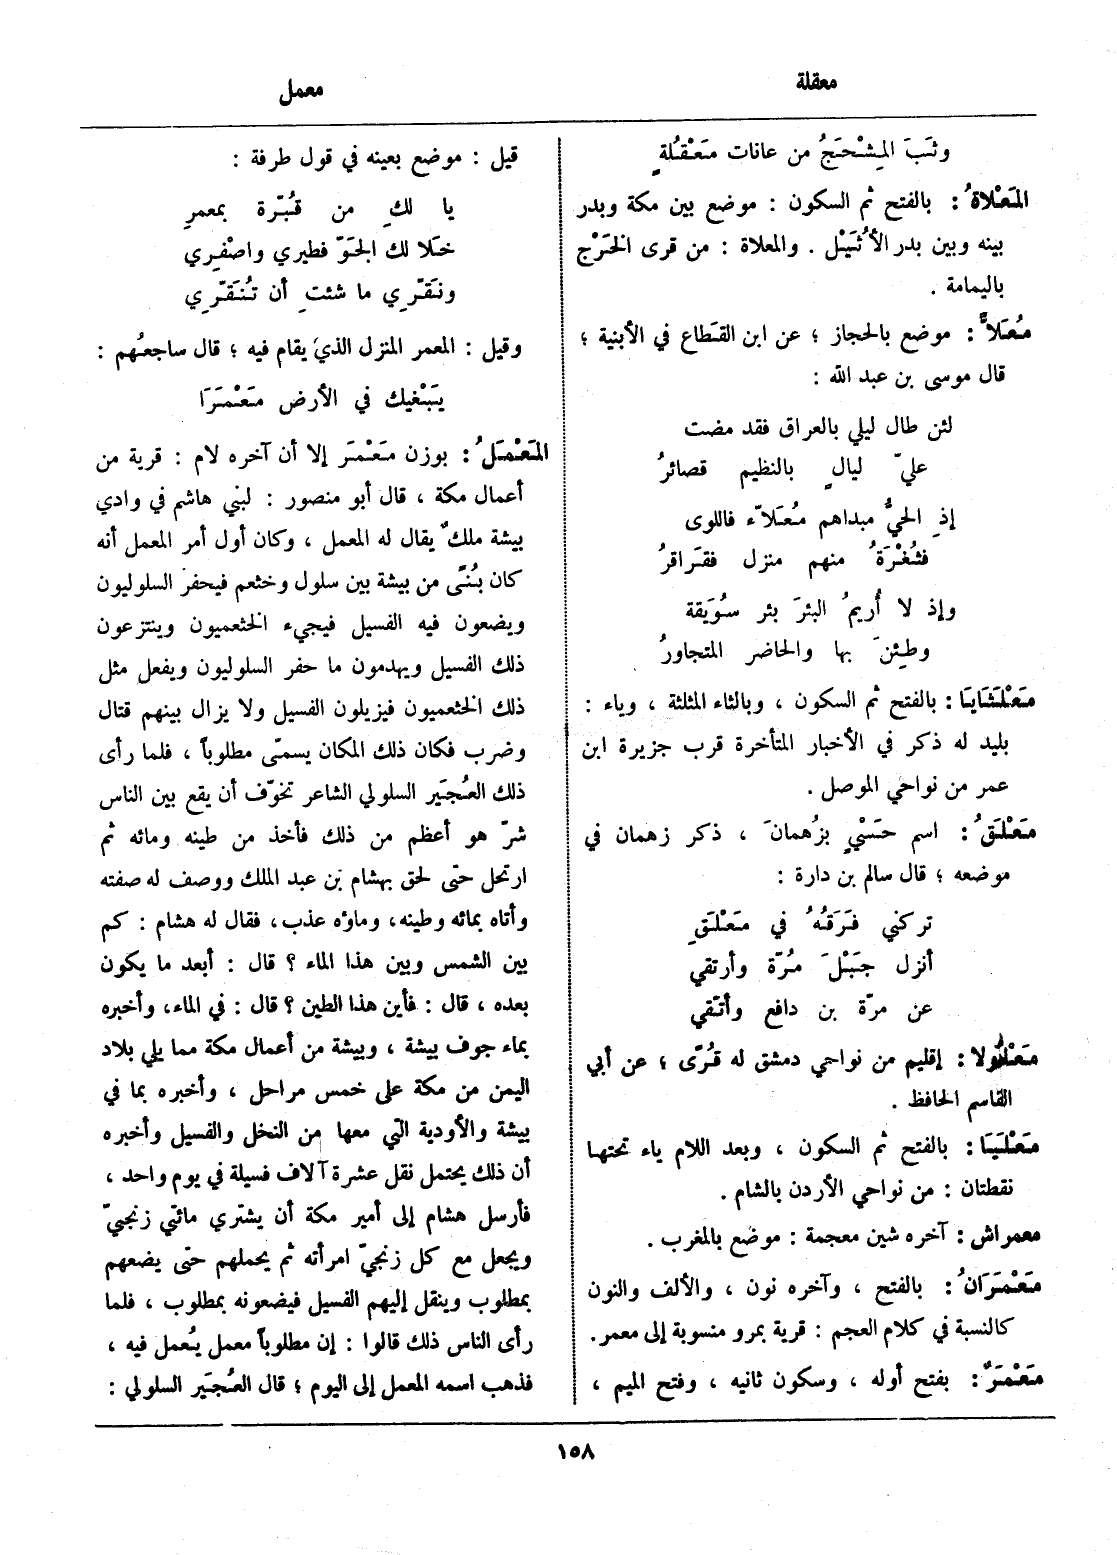 معقلة
معمل
وثَبَ المِسْحَجُ من عانات مَعْقُلةٍ
المَعْلاةُ : بالفتح ثم السكون : موضع بين مكة وبدر
بينه وبين بدر الأُثَيْل . والمعلاة : من قرى الخَرْج
باليمامة .
مُعَلاًّ : موضع بالحجاز ؛ عن ابن القَطاع في الأبنية ؛
قال موسى بن عبد الله :
لئن طال ليلي بالعراق فقد مضت
عليّ ليالٍ بالنظيم قصائرُ
إذِ الحيُّ مبداهم مُعَلاّء فاللوى
فثُغْرَةُ منهم منزل فقَراقرُ
وإذ لا أُريمُ البئرَ بئر سُوَيقة
وطِئنَ بها والحاضر المتجاورُ
مَعْلَثَايَا : بالفتح ثم السكون ، وبالثاء المثلثة ، وياء :
بليد له ذكر في الأخبار المتأخرة قرب جزيرة ابن
عمر من نواحي الموصل .
مَعْلَقُ : اسم حَسْيٍ بزُهمانَ ، ذكر زهمان في
موضعه ؛ قال سالم بن دارة :
تركني فَرَقُهُ في مَعْلَقِ
أنزل جَبَلَ مُرّة وأرتقي
عن مرّة بن دافع وأتّقي
مَعْلُولا : إقليم من نواحي دمشق له قُرًى ؛ عن أبي
القاسم الحافظ .
مَعْلَيَا : بالفتح ثم السكون ، وبعد اللام ياء تحتها
نقطتان : من نواحي الأردن بالشام .
معمراش : آخره شين معجمة : موضع بالمغرب .
مَعْمَرَانُ : بالفتح ، وآخره نون ، والألف والنون
كالنسبة في كلام العجم : قرية بمرو منسوبة إلى معمر.
مَعْمَرٌ : بفتح أوله ، وسكون ثانيه ، وفتح الميم ،
قيل : موضع بعينه في قول طرفة :
يا لكِ من قُبّرة بمعمرِ
خَلا لك الجَوّ فطيري واصْفِري
ونَقّرِي ما شئتِ أن تُنَقّرِي
وقيل : المعمر المنزل الذي يقام فيه ؛ قال ساجعهم :
يَبْغيك في الأرض مَعْمَرَا
المَعْمَلُ : بوزن مَعْمَر إلا أن آخره لام : قرية من
أعمال مكة ، قال أبو منصور : لبني هاشم في وادي
بيشة ملكٌ يقال له المعمل ، وكان أول أمر المعمل أنه
كان بُنّى من بيشة بين سلول وخثعم فيحفر السلوليون
ويضعون فيه الفسيل فيجيء الخثعميون وينتزعون
ذلك الفسيل ويهدمون ما حفر السلوليون ويفعل مثل
ذلك الخثعميون فيزيلون الفسيل ولا يزال بينهم قتال
وضرب فكان ذلك المكان يسمّى مطلوباً ، فلما رأى
ذلك العُجَير السلولي الشاعر تخوّف أن يقع بين الناس
شرّ هو أعظم من ذلك فأخذ من طينه ومائه ثم
ارتحل حتى لحق بهشام بن عبد الملك ووصف له صفته
وأتاه بمائه وطينه، وماؤه عذب، فقال له هشام : كم
بين الشمس وبين هذا الماء ؟ قال : أبعد ما يكون
بعده ، قال : فأين هذا الطين ؟ قال : في الماء، وأخبره
بماء جوف بيشة ، وبيشة من أعمال مكة مما يلي بلاد
اليمن من مكة على خمس مراحل ، وأخبره بما في
بيشة والأودية التي معها من النخل والفسيل وأخبره
أن ذلك يحتمل نقل عشرة آلاف فسيلة في يوم واحد ،
فأرسل هشام إلى أمير مكة أن يشتري مائتي زنجيّ
ويجعل مع كل زنجيّ امرأته ثم يحملهم حتى يضعهم
بمطلوب وينقل إليهم الفسيل فيضعونه بمطلوب ، فلما
رأى الناس ذلك قالوا : إن مطلوباً معمل يُعمل فيه ،
فذهب اسمه المعمل إلى اليوم ؛ قال العُجَير السلولي :
١٥٨